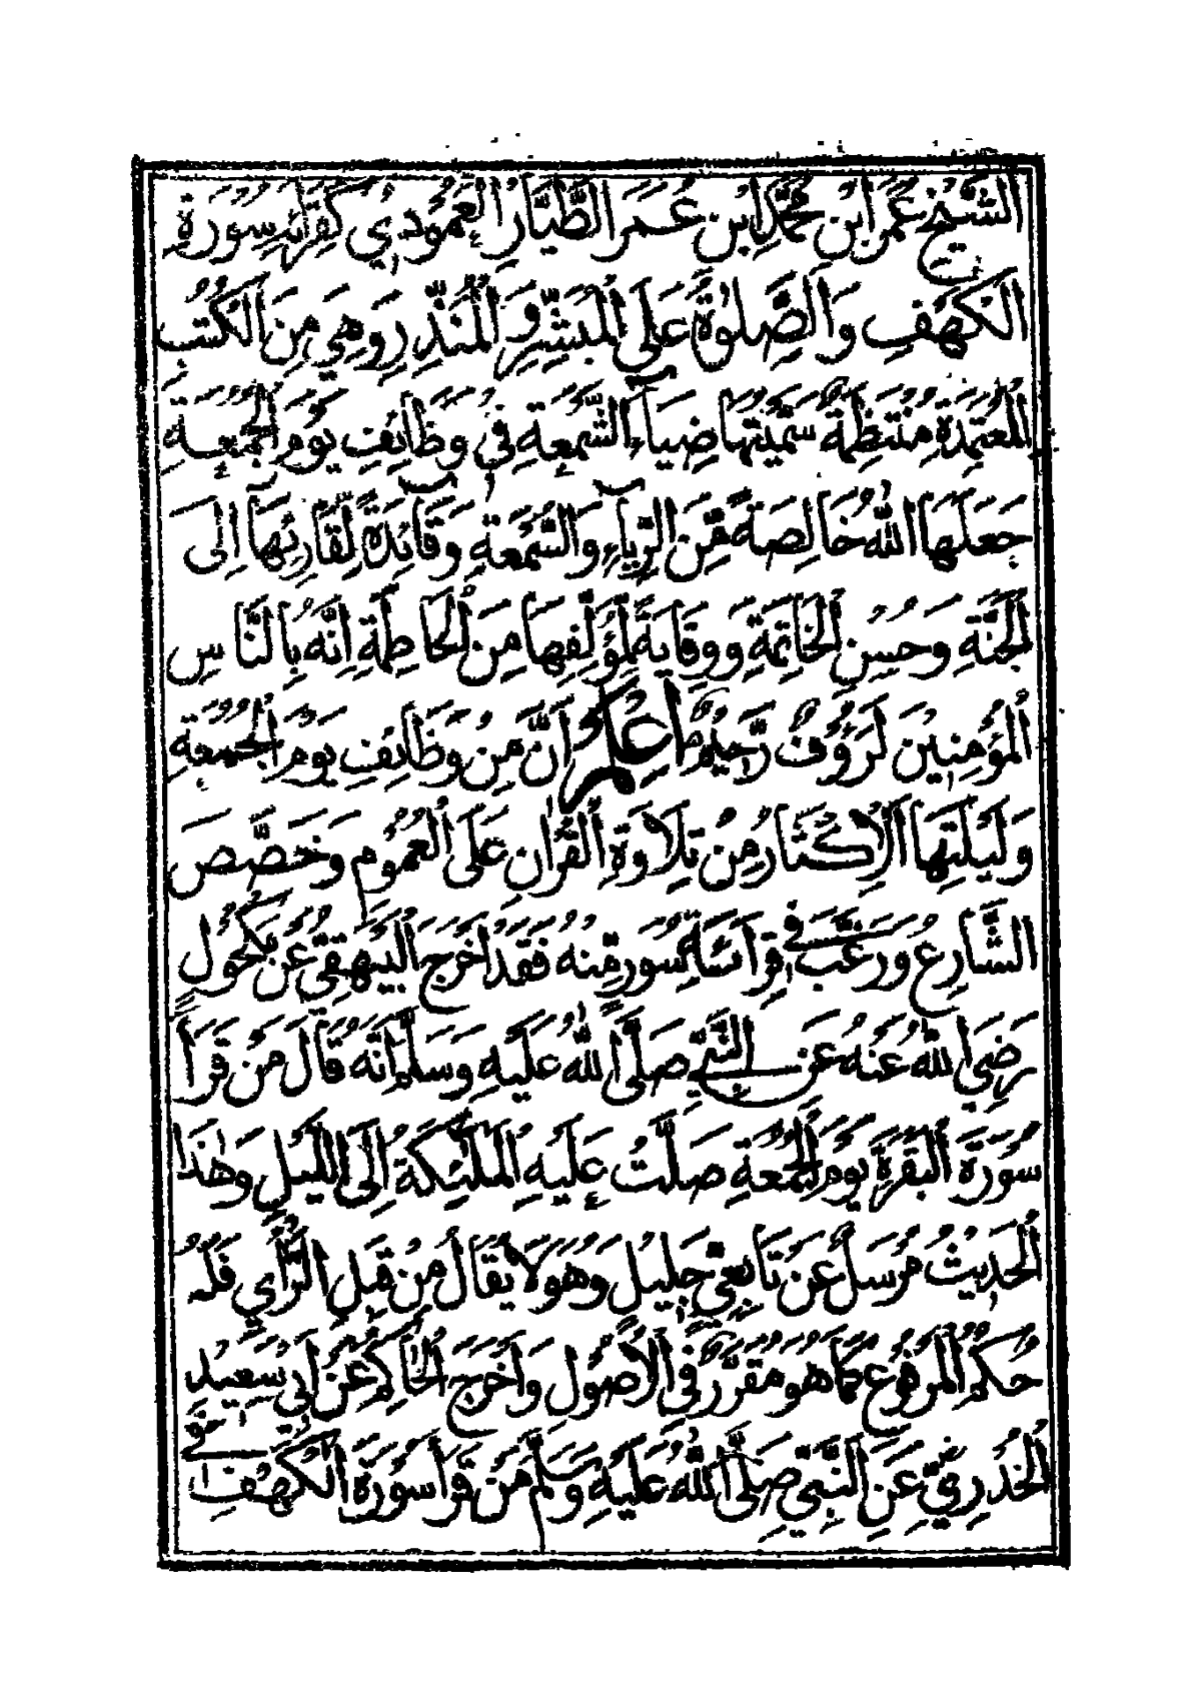 الشَّيْخِ عُمَرَ ابْنِ مُحَمَّدِ ابْنِ عُمَرَ الطَّيَّارِ الْعَمُوْدِيِّ كَقِرَاءَةِ سُوْرَةِ
الْكَهْفِ وَالصَّلٰوةِ عَلَى الْمُبَشِّرِ وَالْمُنَذِّرِ وَهِيَ مِنَ الْكُتُبِ
الْمُعْتَمَدَةِ مُنْتَظِمَةٌ سَمَّيْتُهَا ضِيَاءَ الشَّمْعَةِ فِيْ وَظَائِفِ يَوْمِ الْجُمُعَةِ
جَعَلَهَا اللّٰهُ خَالِصَةً مِّنَ الرِّيَاءِ وَالسُّمْعَةِ وَقَائِدَةً لِّقَارِئِهَا اِلَى
الْجَنَّةِ وَحُسْنِ الْخَاتِمَةِ وَوِقَايَةً لِمُؤَلِّفِهَا مِنَ الْحَاطِمَةِ اِنَّهُ بِالنَّاسِ
الْمُؤْمِنِيْنَ لَرَؤُوْفٌ رَّحِيْمٌ اِعْلَمْ اَنَّ مِنْ وَظَائِفِ يَوْمِ الْجُمُعَةِ
وَلَيْلَتِهَا الْاِكْثَارُ مِنْ تِلَاوَةِ الْقُرْاٰنِ عَلَى الْعُمُوْمِ وَخَصَّصَ
الشَّارِعُ وَرَغَّبَ فِيْ قِرَائَةِ سُوَرٍ مِّنْهُ فَقَدْ اَخْرَجَ الْبَيْهَقِيُّ عَنْ مَكْحُوْلٍ
رَضِيَ اللّٰهُ عَنْهُ عَنِ النَّبِيِّ صَلَّى اللّٰهُ عَلَيْهِ وَسَلَّمَ اَنَّهُ قَالَ مَنْ قَرَأَ
سُوْرَةَ الْبَقَرَةِ يَوْمَ الْجُمُعَةِ صَلَّتْ عَلَيْهِ الْمَلٰئِكَةُ اِلَى اللَّيْلِ وَهٰذَا
الْحَدِيْثُ مُرْسَلٌ عَنْ تَابِعِيٍّ جَلِيْلٍ وَهُوَ لَا يُقَالُ مِنْ قِبَلِ الرَّأْيِ فَلَهُ
حُكْمُ الْمَرْفُوْعِ كَمَا هُوَ مُقَرَّرٌ فِي الْاُصُوْلِ وَاَخْرَجَ الْحَاكِمُ عَنْ اَبِيْ سَعِيْدٍ
الْخُدْرِيِّ عَنِ النَّبِيِّ صَلَّى اللّٰهُ عَلَيْهِ وَسَلَّمَ مَنْ قَرَأَ سُوْرَةَ الْكَهْفِ فِيْ